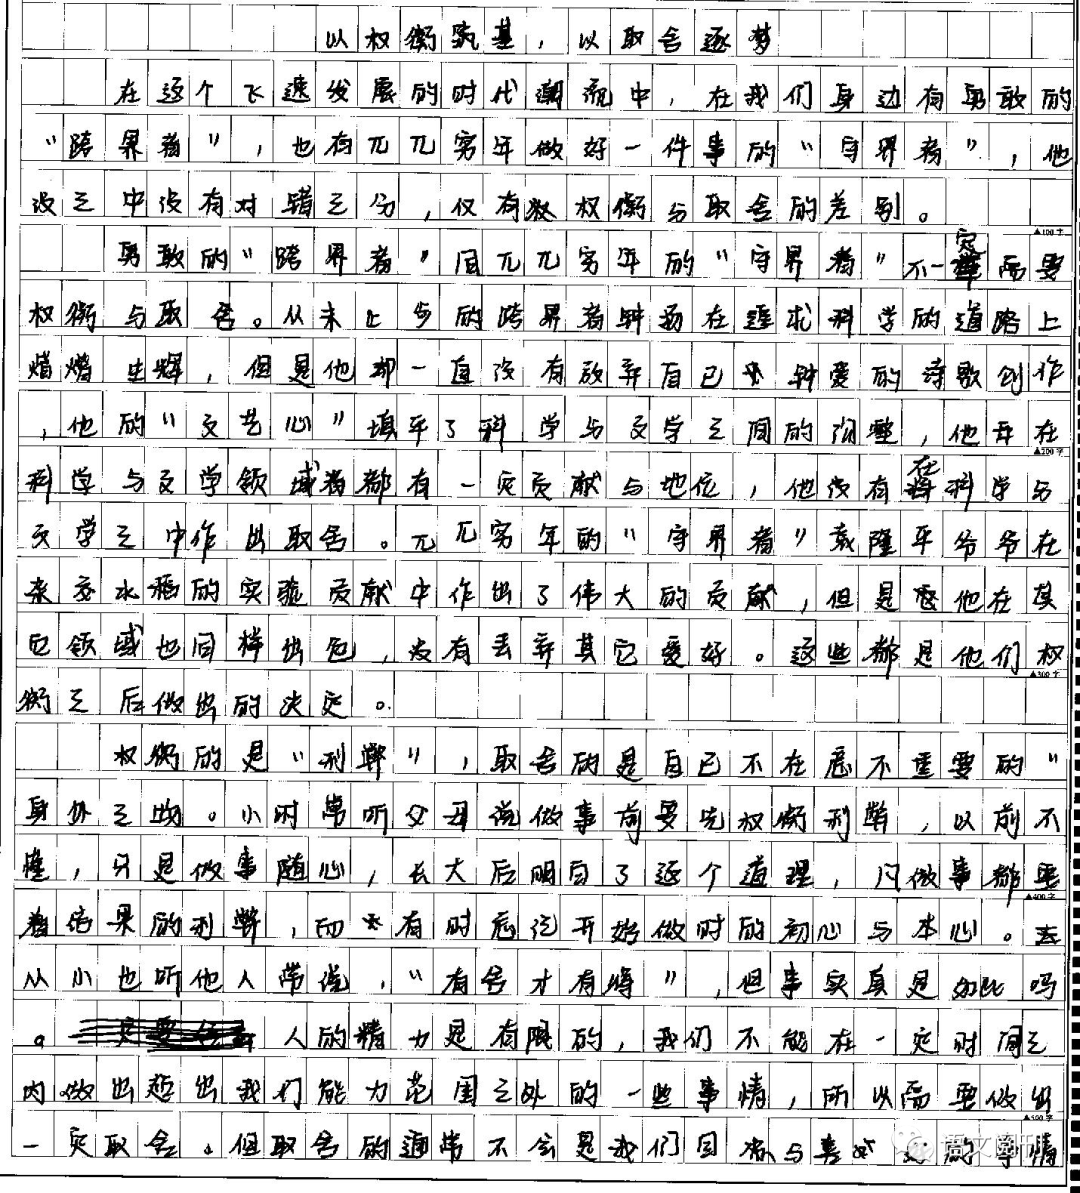 以权衡筑基，以取舍逐梦
在这个飞速发展的时代潮流中，在我们身边有勇敢的
“跨界者”，也有兀兀穷年做好一件事的“守界者”，他
没之中没有对错之分，仅有权衡与取舍的差别。
▲100字
勇敢的“跨界者”同兀兀穷年的“守界者”不一定需要
权衡与取舍。从未止步的跨界者钟扬在追求科学的道路上
熠熠生辉，但是他却一直没有放弃自己钟爱的诗歌创作
，他的“文艺心”填平了科学与文学之间的沟壑，他并在
▲200字
科学与文学领域都有一定贡献与地位，他没有在科学与
文学之中作出取舍。兀兀穷年的“守界者”袁隆平爷爷在
杂交水稻的实验贡献中作出了伟大的贡献，但是他在其
它领域也同样出色，没有丢弃其它爱好。这些都是他们权
▲300字
衡之后做出的决定。
权衡的是“利弊”，取舍的是自己不在意不重要的“
身外之物。小时常听父母说做事前要先权衡利弊，以前不
懂，只是做事随心，长大后明白了这个道理，凡做事都要
▲400字
看结果的利弊，而有时忘记开始做时的初心与本心。
从小也听他人常说，“有舍才有得”，但事实真是如此吗
。人的精力是有限的，我们不能在一定时间之
内做出超出我们能力范围之外的一些事情，所以需要做出
▲500字
一定取舍。但取舍的通常不会是我们同热与喜欢的事情
语文周刊